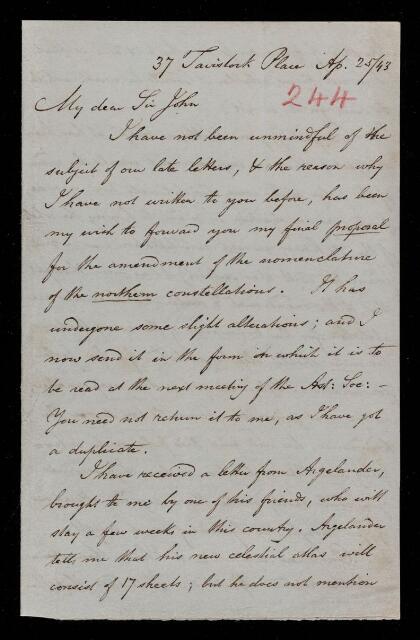 37 Tavistock Place Ap. 25/43
244
My dear Sir John
I have not been unmindful of the
subject of our late letters, & the reason why
I have not written to you before, has been
my wish to forward you my final proposal
for the amendment of the nomenclature
of the northern constellations. It has
undergone some slight alterations; and I
now send it in the form in which it is to
be read at the next meeting of the Ast: Soc: -
You need not return it to me, as I have got
a duplicate.
I have received a letter from Argelander,
brought to me by one of his friends, who will
stay a few weeks in this country. Argelander
tells me that his new celestial atlas will
consist of 17 sheets; but he does not mention